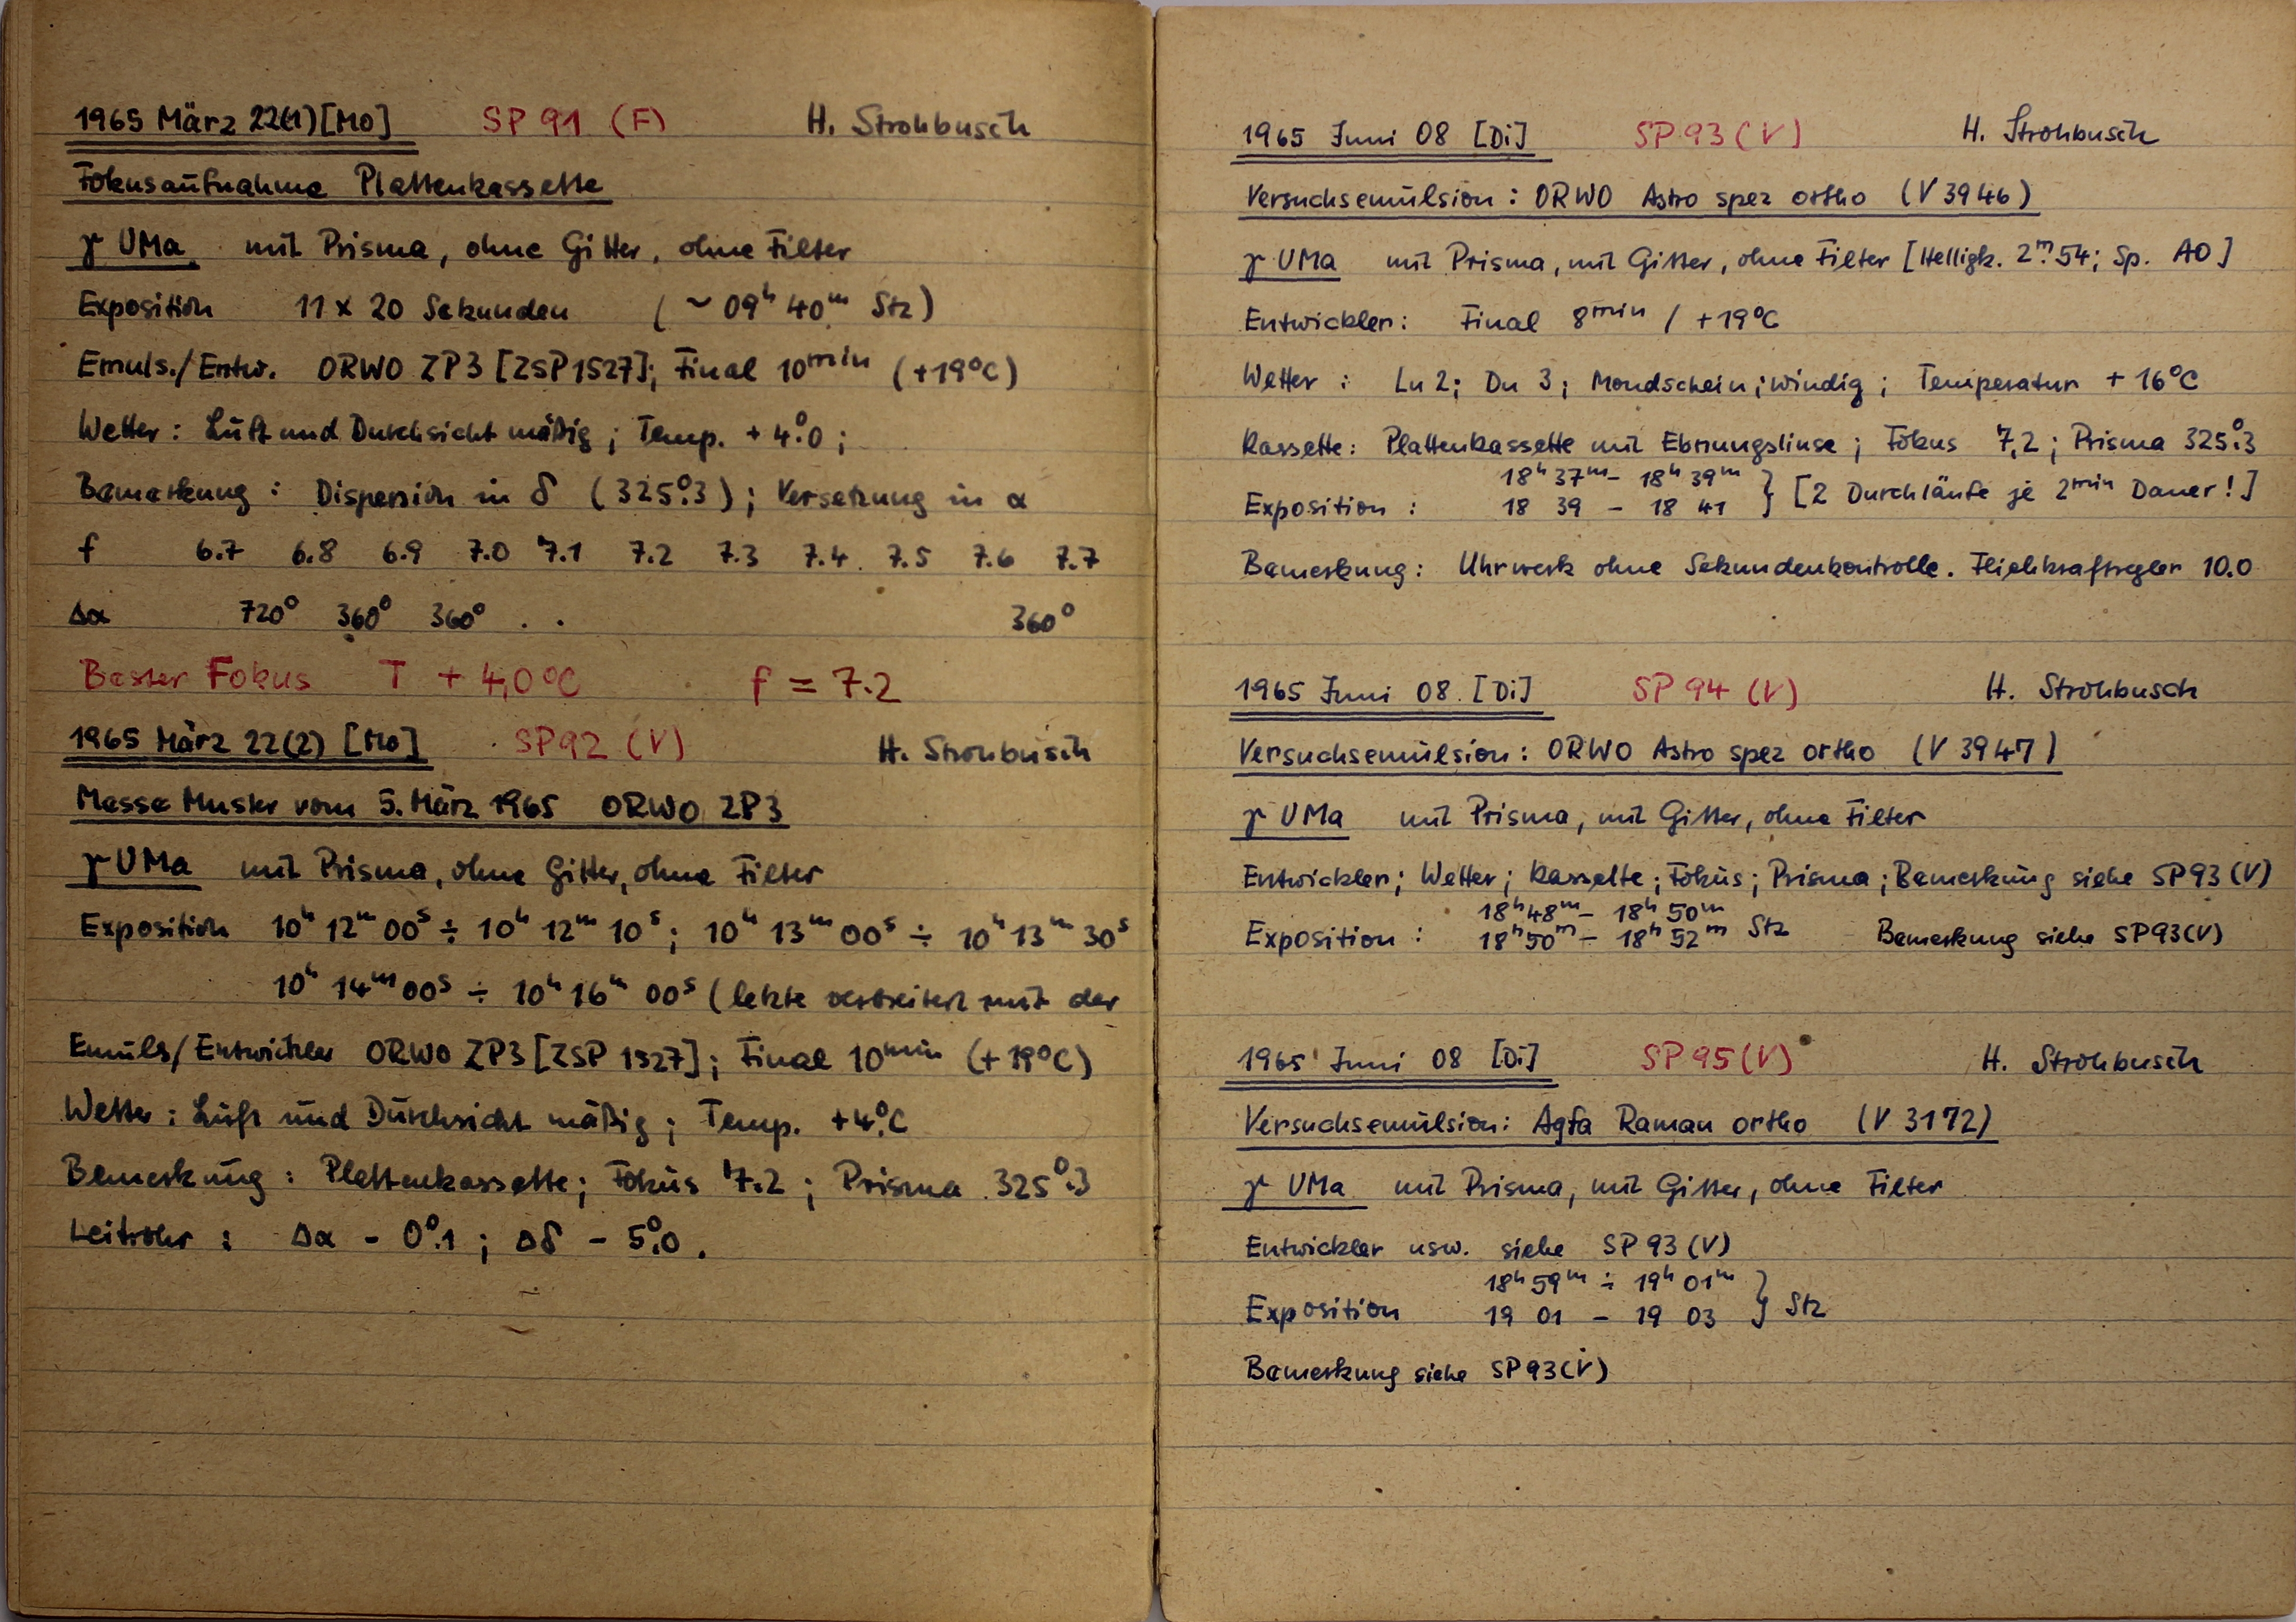 1965 März 22(1) [Mo] SP 91 (F) H. Strohbusch
Fokusaufnahme Plattenkassette
γ UMa mit Prisma, ohne Gitter, ohne Filter
Exposition 11 x 20 Sekunden (~ 09ʰ 40ᵐ Stz)
Emuls./Entw. ORWO ZP3 [ZSP1527]; Final 10ᵐⁱⁿ (+19°C)
Wetter: Luft und Durchsicht mäßig; Temp. + 4°.0;
Bemerkung: Dispersion in δ (325°.3); Versetzung in α
f 6.7 6.8 6.9 7.0 7.1 7.2 7.3 7.4 7.5 7.6 7.7
Δα 720° 360° 360° . . 360°
Bester Fokus T + 4,0°C f = 7.2
1965 März 22(2) [Mo] SP92 (V) H. Strohbusch
Messe Muster vom 5. März 1965 ORWO ZP3
γ UMa mit Prisma, ohne Gitter, ohne Filter
Exposition 10ʰ 12ᵐ 00ˢ ÷ 10ʰ 12ᵐ 10ˢ; 10ʰ 13ᵐ 00ˢ ÷ 10ʰ 13ᵐ 30ˢ
10ʰ 14ᵐ 00ˢ ÷ 10ʰ 16ᵐ 00ˢ (letzte verbreitert mit der
Emuls/Entwickler ORWO ZP3 [ZSP 1527]; Final 10ᵐⁱⁿ (+19°C)
Wetter: Luft und Durchsicht mäßig; Temp. +4°C
Bemerkung: Plattenkassette; Fokus 7.2; Prisma 325°.3
Leitrohr: Δα - 0°.1; Δδ - 5°.0.
1965 Juni 08 [Di] SP 93 (V) H. Strohbusch
Versuchsemulsion: ORWO Astro spez ortho (V 3946)
γ UMa mit Prisma, mit Gitter, ohne Filter [Helligk. 2ᵐ.54; Sp. A0]
Entwickler: Final 8ᵐⁱⁿ / +19°C
Wetter: Lu 2; Du 3; Mondschein; windig; Temperatur + 16°C
Kassette: Plattenkassette mit Ebnungslinse; Fokus 7,2; Prisma 325°.3
18ʰ 37ᵐ - 18ʰ 39ᵐ
Exposition: 18 39 - 18 41 } [2 Durchläufe je 2ᵐⁱⁿ Dauer!]
Bemerkung: Uhrwerk ohne Sekundenkontrolle. Fliehkraftregler 10.0
1965 Juni 08 [Di] SP 94 (V) H. Strohbusch
Versuchsemulsion: ORWO Astro spez ortho (V 3947)
γ UMa mit Prisma, mit Gitter, ohne Filter
Entwickler; Wetter; Kassette; Fokus; Prisma; Bemerkung siehe SP93 (V)
18ʰ 48ᵐ - 18ʰ 50ᵐ
Exposition: 18ʰ 50ᵐ - 18ʰ 52ᵐ Stz Bemerkung siehe SP93(V)
1965 Juni 08 [Di] SP 95 (V) H. Strohbusch
Versuchsemulsion: Agfa Raman ortho (V 3172)
γ UMa mit Prisma, mit Gitter, ohne Filter
Entwickler usw. siehe SP 93 (V)
18ʰ 59ᵐ ÷ 19ʰ 01ᵐ
Exposition 19 01 - 19 03 } Stz
Bemerkung siehe SP93(V)